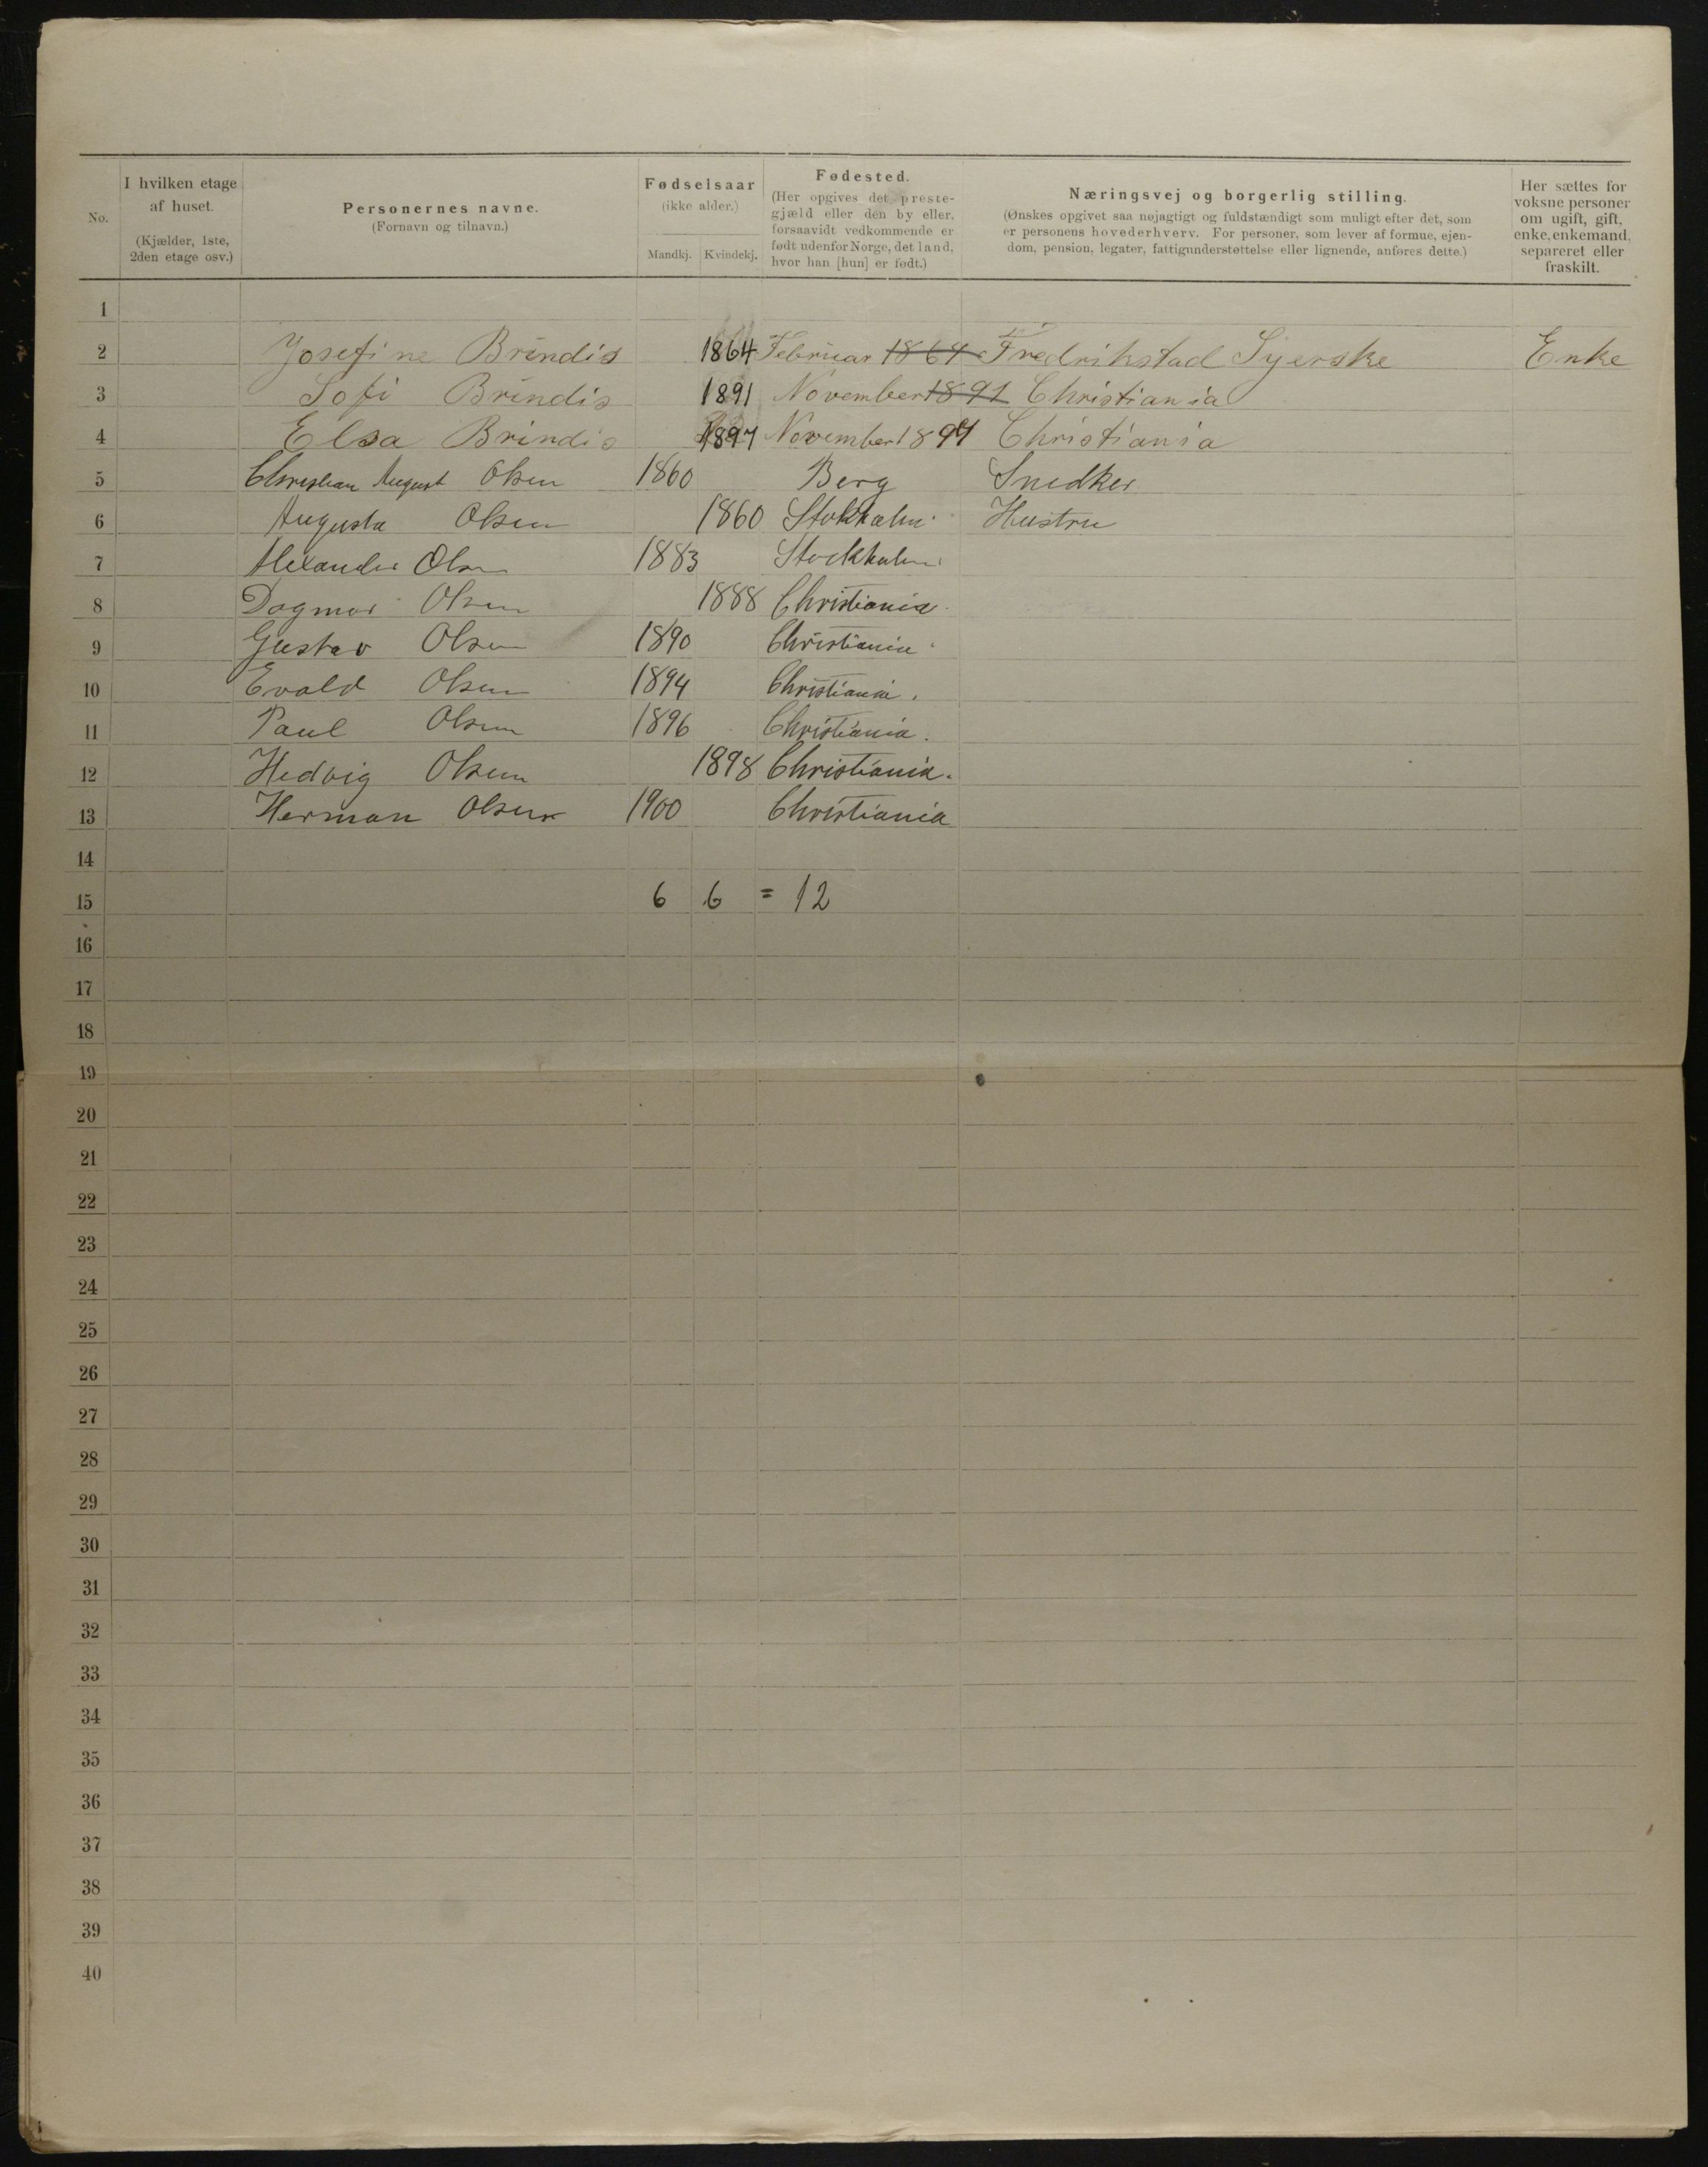 No.
I hvilken etage af huset. (Kjælder, 1ste, 2den etage osv.)
Personernes navne. (Fornavn og tilnavn.)
Fødselsaar (ikke alder.)
Mandkj. Kvindekj.
Fødested. (Her opgives det preste-gjæld eller den by eller, forsaavidt vedkommende er født udenfor Norge, det land, hvor han [hun] er født.)
Næringsvej og borgerlig stilling. (Ønskes opgivet saa nøjagtigt og fuldstændigt som muligt efter det, som er personens hovederhverv. For personer, som lever af formue, ejen-dom, pension, legater, fattigunderstøttelse eller lignende, anføres dette.)
Her sættes for voksne personer om ugift, gift, enke, enkemand, separeret eller fraskilt.
1
2 Josefine Brindis 1864 Februar 1864 Fredrikstad Syerske Enke
3 Sofi Brindis 1891 November 1891 Christiania
4 Elsa Brindis 1897 November 1897 Christiania
5 Christian August Olsen 1860 Berg Snedker
6 Augusta Olsen 1860 Stokholm. Hustru
7 Alexander Olsen 1883 Stockholm.
8 Dagmar Olsen 1888 Christiania.
9 Gustav Olsen 1890 Christiania.
10 Evald Olsen 1894 Christiania.
11 Paul Olsen 1896 Christiania.
12 Hedvig Olsen 1898 Christiania.
13 Herman Olsen 1900 Christiania
14
15 6 6 = 12
16
17
18
19
20
21
22
23
24
25
26
27
28
29
30
31
32
33
34
35
36
37
38
39
40